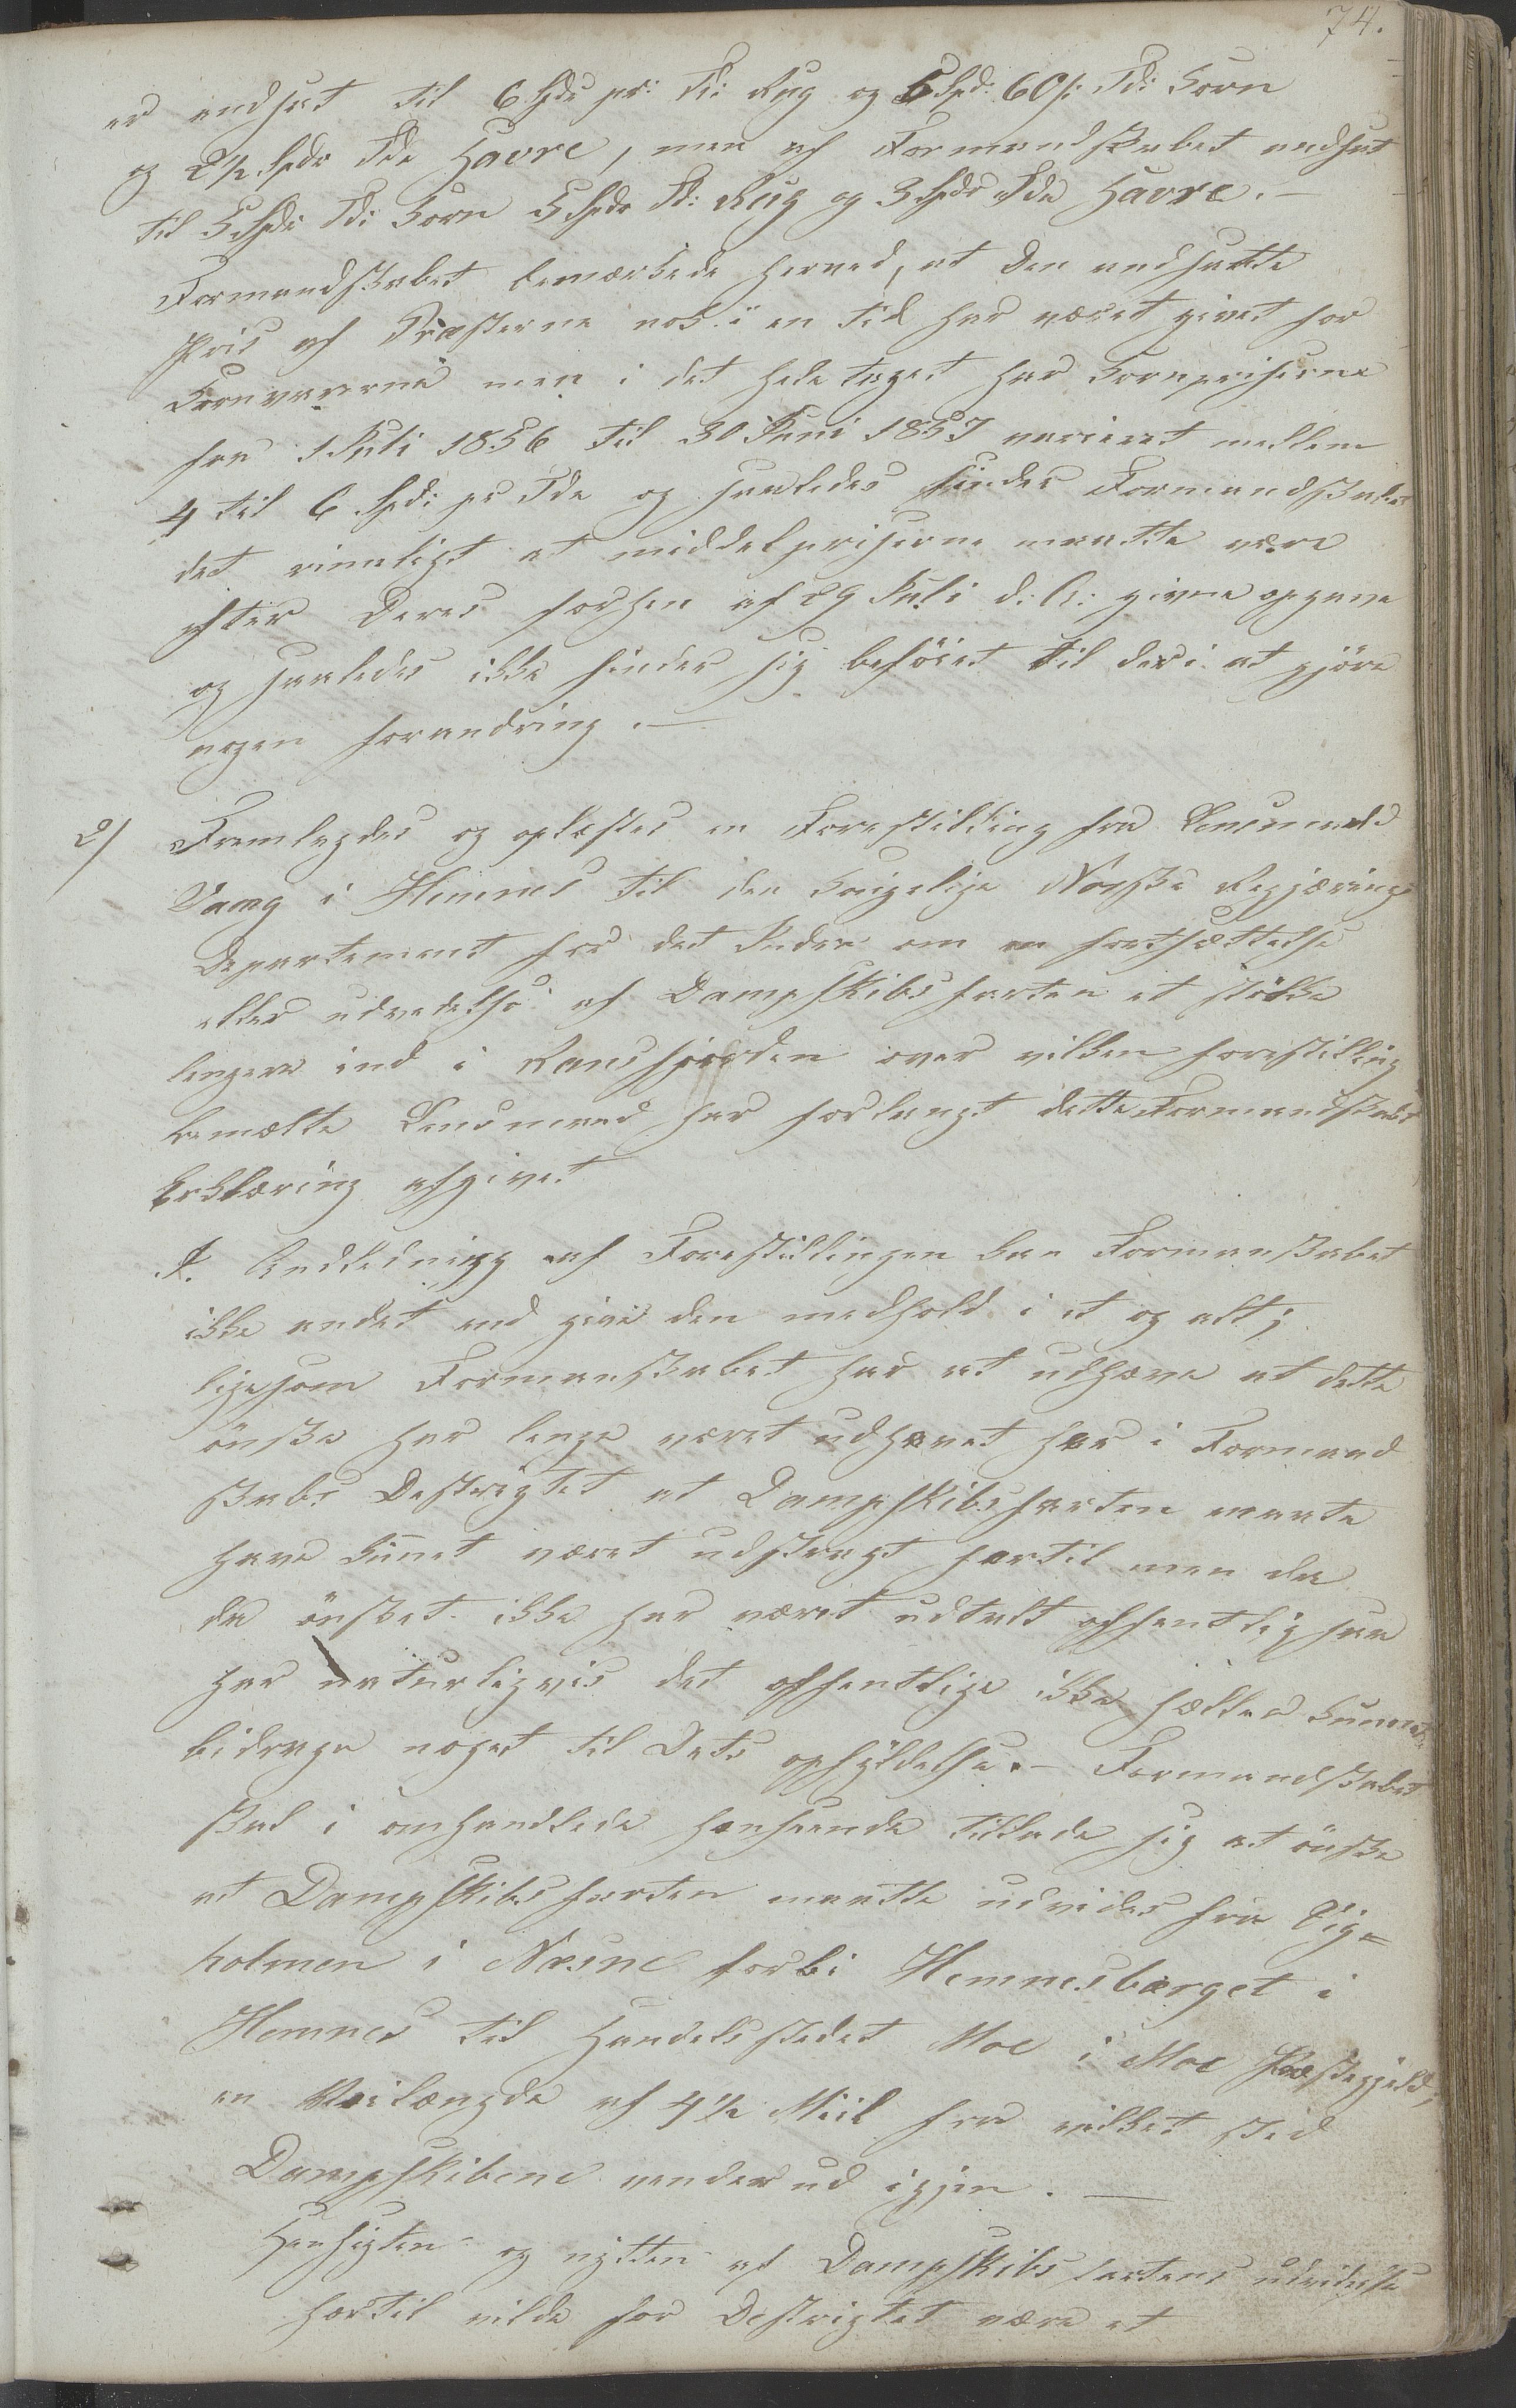 74.
er andsat til 6 Spd pr: Td: Rug og 5 Spd. 60 s: Td: Korn
og 2 1/2 Spd Tde Havre, men af Formandskabet andsat
til 5 Spd: Td: Korn 5 Spd Td: Rug og 3 Spd Tde Havre. —
Formandskabet bemærkede herved, at Den andsatte
Pris af Præsterne nok i en tid har været givet for
Kornvarerne men i det hele taget har Kornpriserne
fra 1 Juli 1856 til 30 Juni 1857 varieret mellem
4 til 6 Spd: pr Tde og saaledes finder Formandskabet
det rimeligt at middelpriserne maatte være
efter Deres forhen af 29 Juli d: A: givne opgave
og saaledes ikke finder sig beföiet til deri at gjöre
nogen forandring. —
2/ Fremlagdes og oplæstes en Forestilling fra Lensmand
Vaag i Hemnes til den Kongelige Norske Regjærings
Departement for det Indre om en fortsættelse
eller udvedelse af Dampskibsfarten et stökke
lengere ind i Ransfjorden over vilken forestilling
bemælte Lensmand har forlangt dette Formandskabs
Erklæring afgivet
I Andledning af Forestillingen kan Formanskabet
ikke andet end give den medhold i et og alt;
ligesom Formanskabet har at udhæve at dette
önske har lenge været udhævet her i Formand
skabs Destrigtet at Dampskibsfarten maatte
have kunnet været udstragt hertil men da
da önsket ikke har været udtalt offentlig saa
har naturligvis det offentlige ikke heller kunnet
bidrage noget til Dets opfyldelse. — Formandskabet
skal i omhandlede henseende tillade sig at önske
at Dampskibsfarten maatte udvides fra Vig=
holmen i Næsne forbi Hemnesbærget i
Hemnes til Handelsstedet Moe i Moe Præstegjeld,
en Veilængde af 4 1/2 Miil fra vilket sted
Dampskibene vender ud igjen. —
Hensigten og nytten af Dampskibs fartens udvidelse
hertil vilde for Destrigtet være at